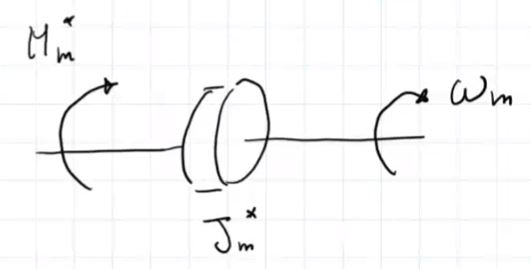 M*m
ωm
J*m